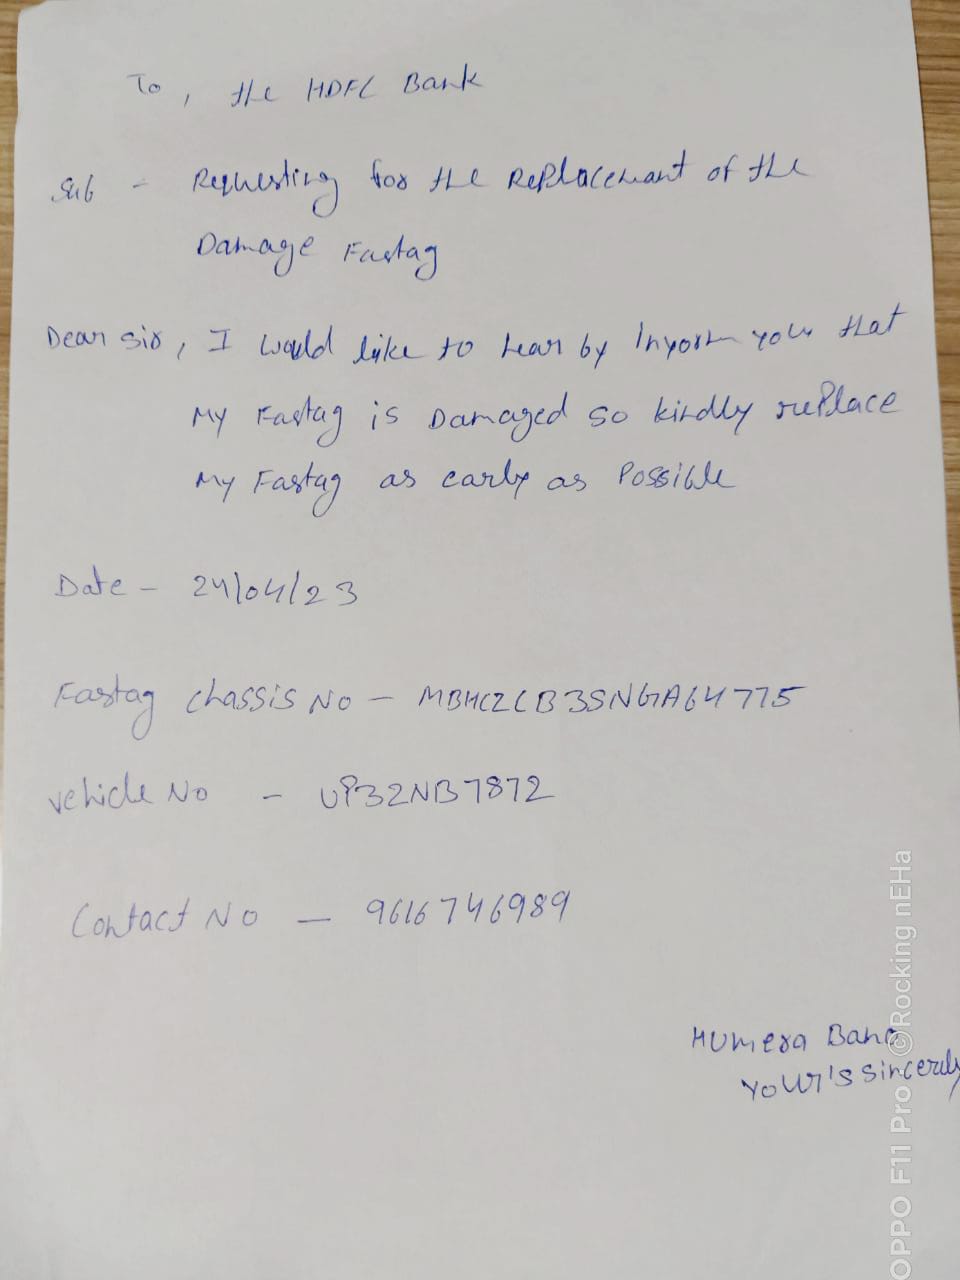 To, the HDFC Bank
Sub - Requesting for the Replacemant of the
Damage Fastag
Dear sir, I would like to hear by Inform you that
My Fastag is Damaged so kindly replace
My Fastag as early as Possible
Date - 24/04/23
Fastag chassis No - MBHCZCB3SNGA64775
vehicle No - UP32NB7872
Contact No - 9616746989
Humera Bano
Your's sincerely
OPPO F11 Pro ©Rocking nEHa